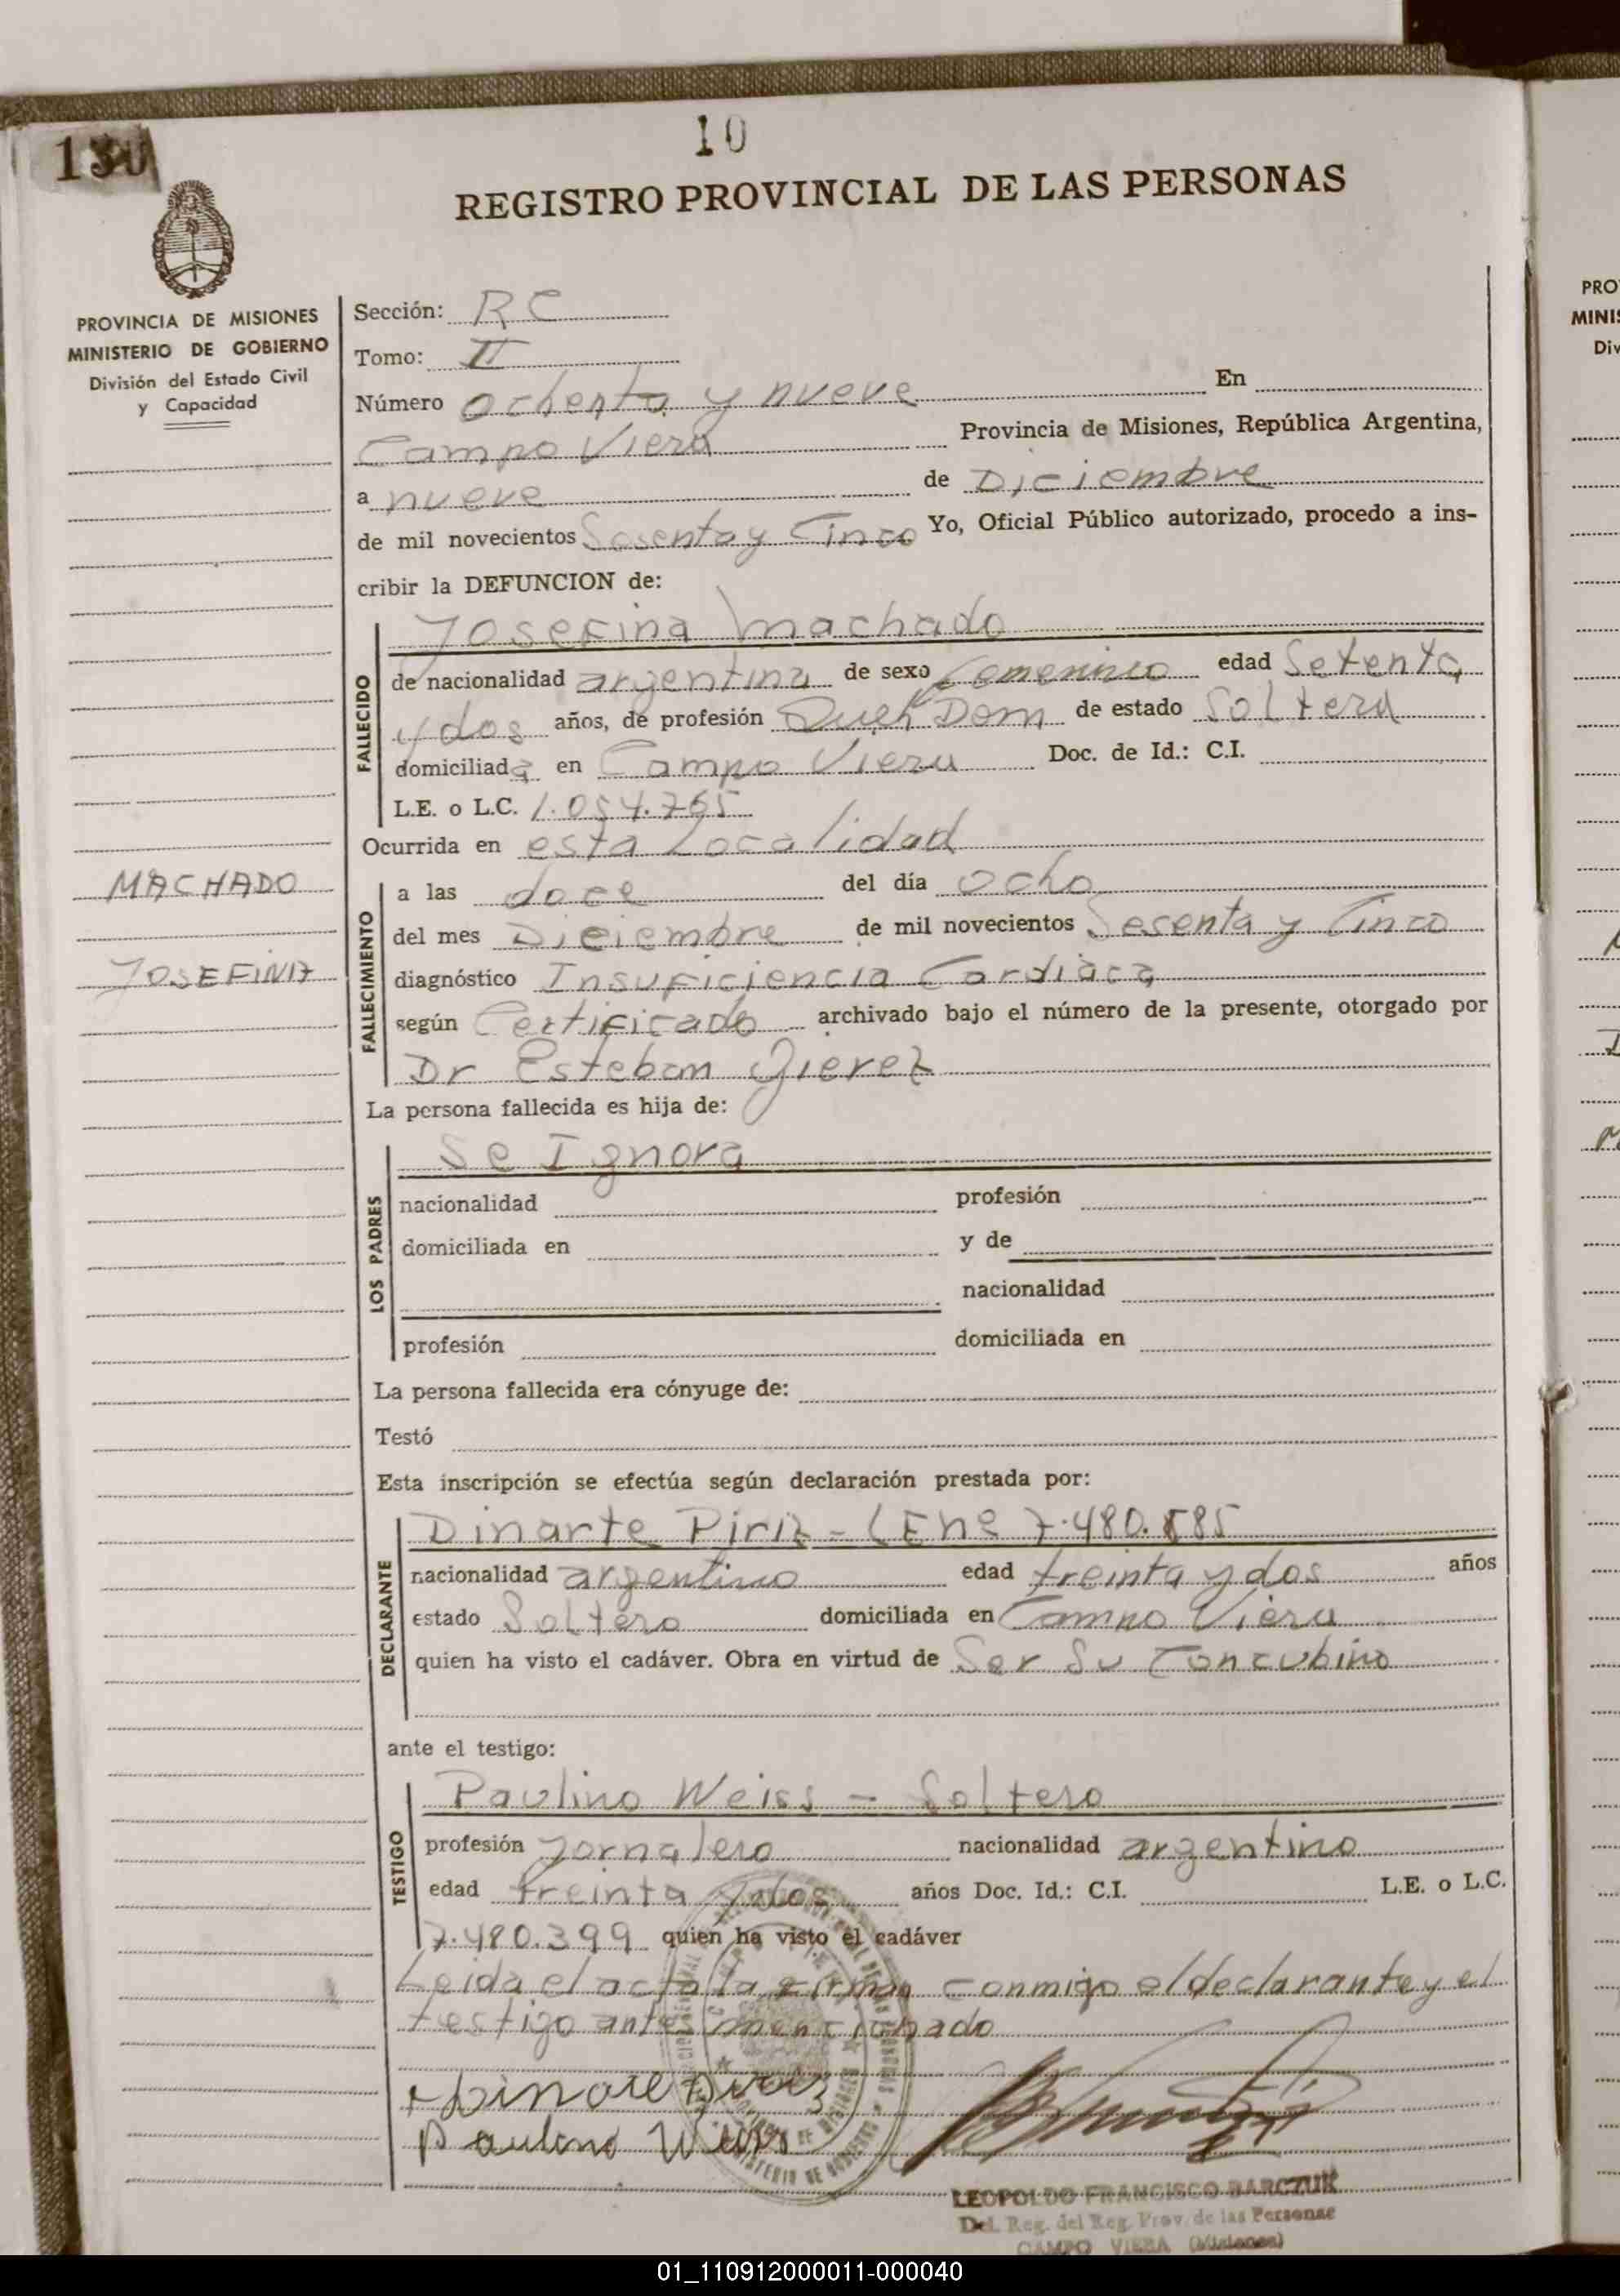 10
REGISTRO PROVINCIAL DE LAS PERSONAS
PROVINCIA DE MISIONES
MINISTERIO DE GOBIERNO
División del Estado Civil
y Capacidad
MACHADO
JOSEFINA
Sección: RC
Tomo: II
Número Ochenta y nueve En
Campo Viera Provincia de Misiones, República Argentina,
a nueve de Diciembre
de mil novecientos Sesenta y Cinco Yo, Oficial Público autorizado, procedo a ins-
cribir la DEFUNCION de:
FALLECIDO
Josefina Machado
de nacionalidad argentina de sexo femenino edad Setenta
y dos años, de profesión Queh Dom de estado Soltera
domiciliada en Campo Viera Doc. de Id.: C.I.
L.E. o L.C. 1.054.765
Ocurrida en esta Localidad
FALLECIMIENTO
a las doce del día ocho
del mes Diciembre de mil novecientos Sesenta y Cinco
diagnóstico Insuficiencia Cardiaca
según Certificado archivado bajo el número de la presente, otorgado por
Dr Esteban Gierez
La persona fallecida es hija de:
LOS PADRES
Se Ignora
nacionalidad profesión
domiciliada en y de
nacionalidad
profesión domiciliada en
La persona fallecida era cónyuge de:
Testó
Esta inscripción se efectúa según declaración prestada por:
DECLARANTE
Dinarte Piriz - LEnº 7.480.885
nacionalidad argentino edad treinta y dos años
estado Soltero domiciliada en Campo Viera
quien ha visto el cadáver. Obra en virtud de Ser Su Concubino
ante el testigo:
TESTIGO
Paulino Weiss - Soltero
profesión Jornalero nacionalidad argentino
edad treinta y dos años Doc. Id.: C.I. L.E. o L.C.
7.480.399 quien ha visto el cadáver
Leida el acta la firman conmigo el declarante y el
testigo antes mencionado
Dinarte Piriz
Paulino Weiss
LEOPOLDO FRANCISCO BARCZUK
Del. Reg. del Reg. Prov. de las Personas
CAMPO VIERA (Misiones)
01_110912000011-000040